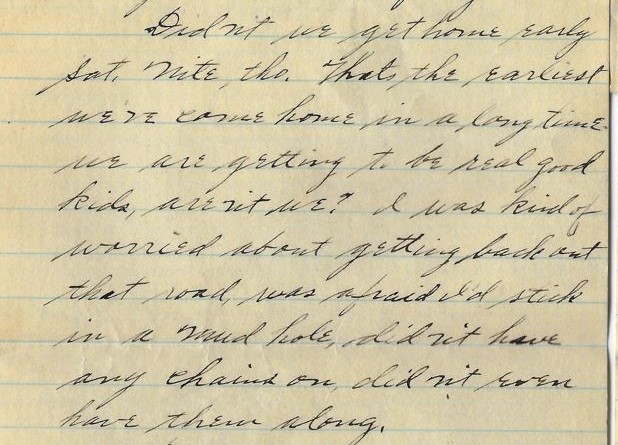 Didn't we get home early
Sat. Nite, tho. That's the earliest
we've come home in a long time.
we are getting to be real good
kids, aren't we? I was kind of
worried about getting back out
that road, was afraid I'd stick
in a mud hole, didn't have
any chains on, didn't even
have them along.